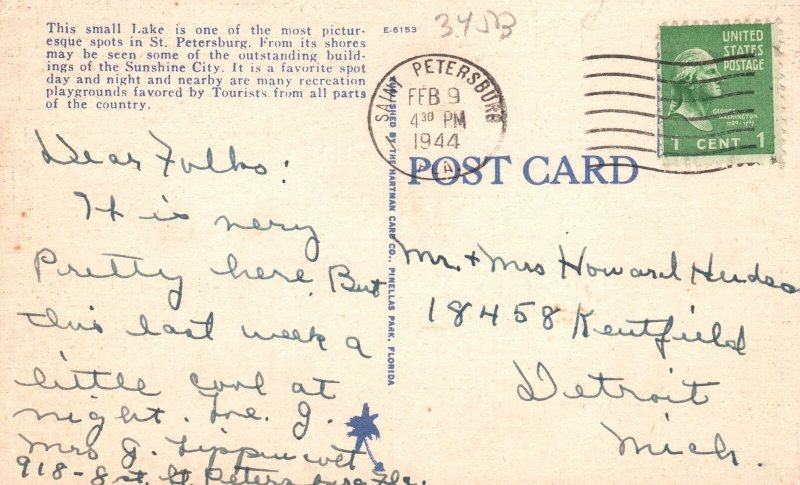 This small Lake is one of the most pictur-
esque spots in St. Petersburg. From its shores
may be seen some of the outstanding build-
ings of the Sunshine City. It is a favorite spot
day and night and nearby are many recreation
playgrounds favored by Tourists from all parts
of the country.
E-6153
SAINT PETERSBURG
FEB 9
4 30 PM
1944
FLA.
UNITED
STATES
POSTAGE
GEORGE
WASHINGTON
1789-1797
1 CENT 1
POST CARD
PUBLISHED BY THE HARTMAN CARD CO., PINELLAS PARK, FLORIDA
Dear Folks:
It is very
Pretty here, But
this last week a
little cool at
night.
Mrs J. Lippincott
918-8 st. St. Petersburg Fla.
Mr. + Mrs Howard Hudson
18458 Kentfield
Detroit
Mich.